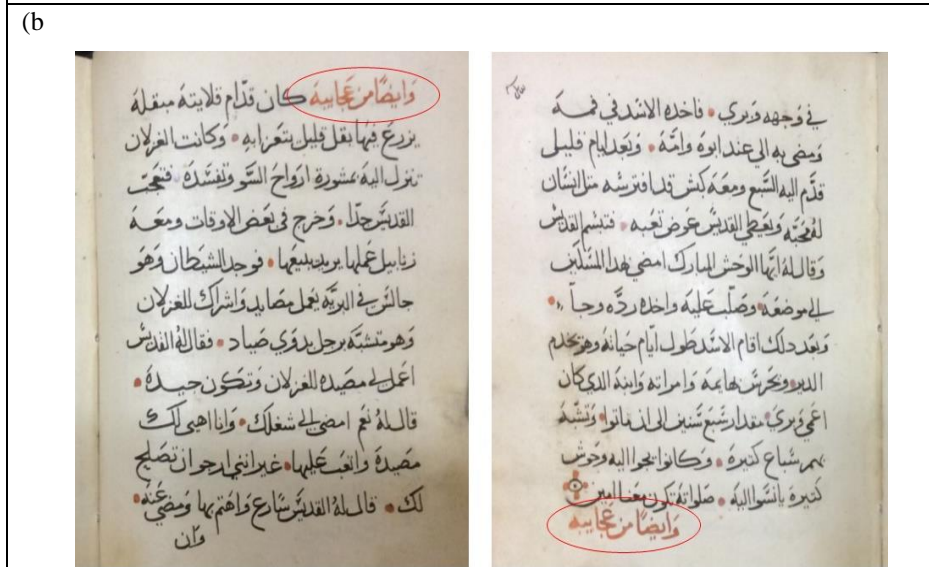 (b
في وجهه وبري • فاخده الاسد في فمه
ومضي به الي عند ابوه وامه • وبعد ايام قليل
قدم اليه السبع ومعه كبش قد افترسه متل انسان
له محبه ويعطي القديس عوض تعبه • فتبسم القديس
وقال له ايها الوحش المبارك امضي بهدا المسكين
الي موضعه • وصلب عليه واخده رده وجا •
وبعد دلك اقام الاسد طول ايام حياته وهو يخدم
الدير • ويحرس بهايمه وامراته وابنه الدي كان
اعمي وبري • مقدار سبع سنين الي ان ماتوا • وتشبه
بهم سباع كتيرة • وكانوا يجوا اليه وحوش
كتيرة يانسوا اليه • صلواته تكون معنا امين
وَايضًا من عَجايبه
وَايضًا من عَجايبه كان قدّام قلايته مبقله
يزرع فيها بقل قليل يتعزا به • وكانت الغزلان
تنزل اليه بمشورة ارواح السو وتفسده فتعجب
القديس جدًا • وخرج في بعض الاوقات ومعه
زنابيل عملها يريد يبيعها • فوجد الشيطان وهو
جالس في البريه يعمل مصايد واشراك للغزلان
وهو متشبه برجل بدوي صياد • فقال له القديس
اعمل لي مصيده للغزلان وتكون جيدة •
قال له نعم امضي الي شغلك • وانا اهيي لك
مصيدة واتعب عليها • غير انني ارجو ان تصلح
لك • قال له القديس سارع واهتم بها ومضي عنه •
وان